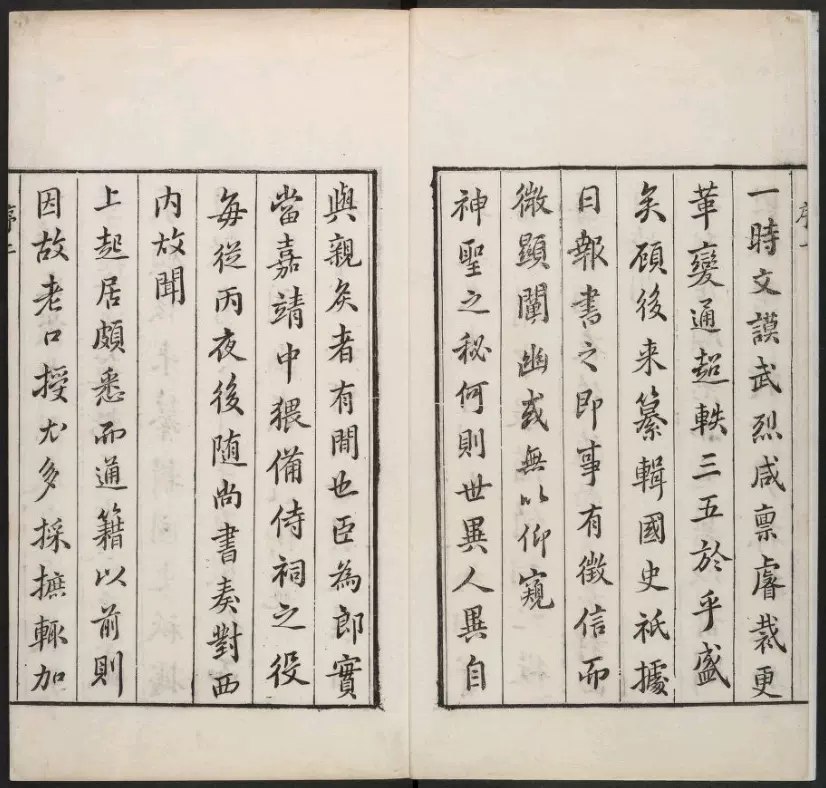 序一
一時文謨武烈咸禀睿裁更
革變通超軼三五於乎盛
矣顧後来纂輯國史祇據
日報書之即事有徵信而
微顯闡幽或無以仰窺
神聖之秘何則世異人異自
與親炙者有間也臣為郎實
當嘉靖中猥備侍祠之役
每從丙夜後随尚書奏對西
内故聞
上起居頗悉而通籍以前則
因故老口授尤多採摭輒加
序二